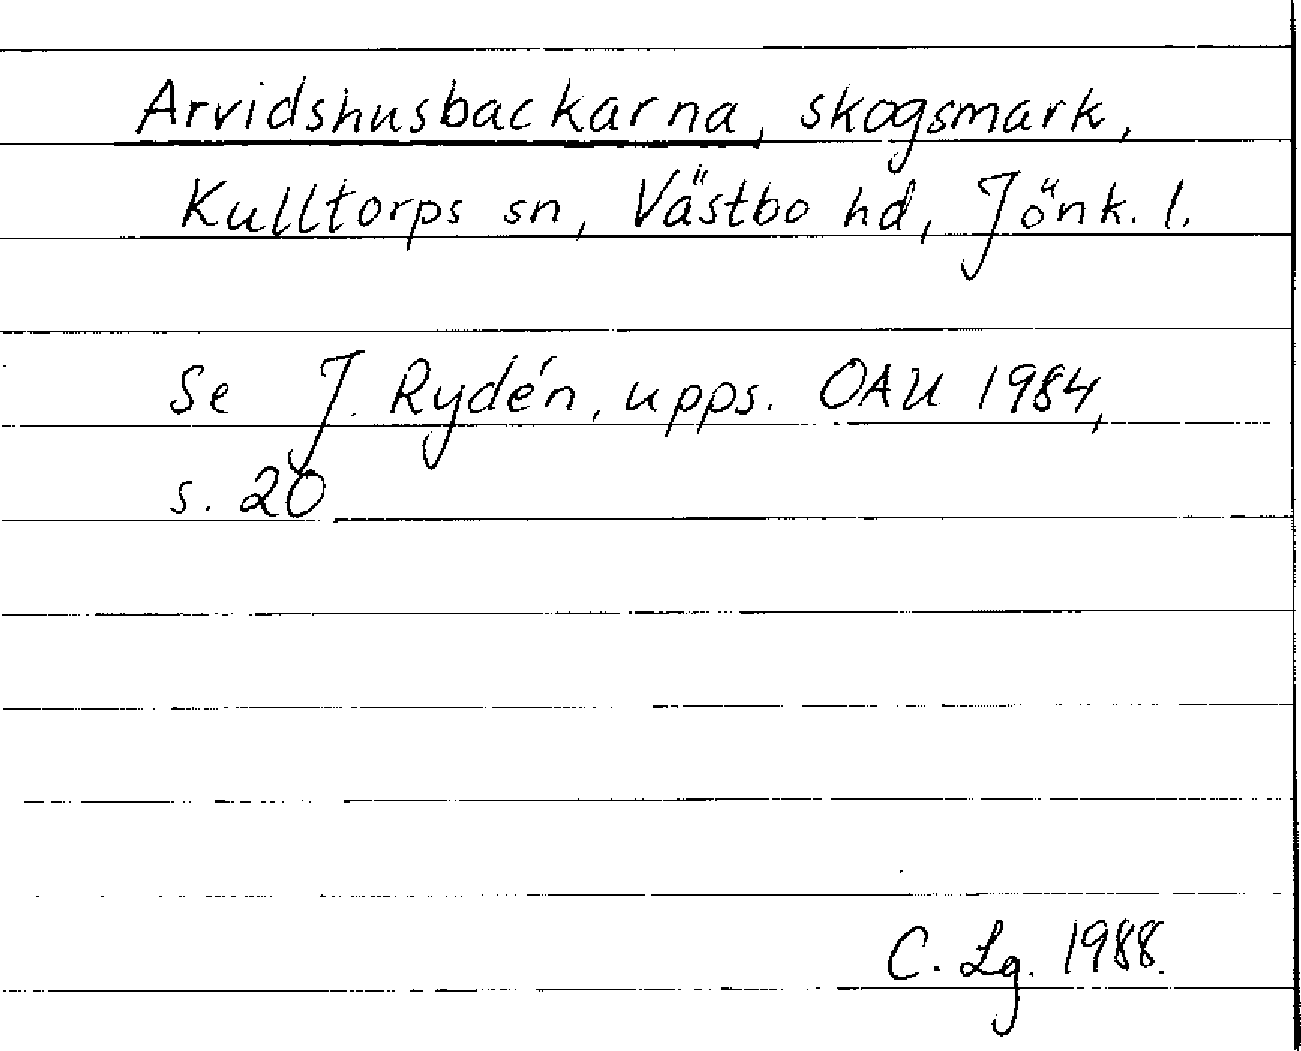 Arvidshusbackarna, skogsmark,
Kulltorps sn, Västbo hd, Jönk. l.
Se J. Rydén, upps. OAU 1984,
s. 20
C. Lg. 1988.